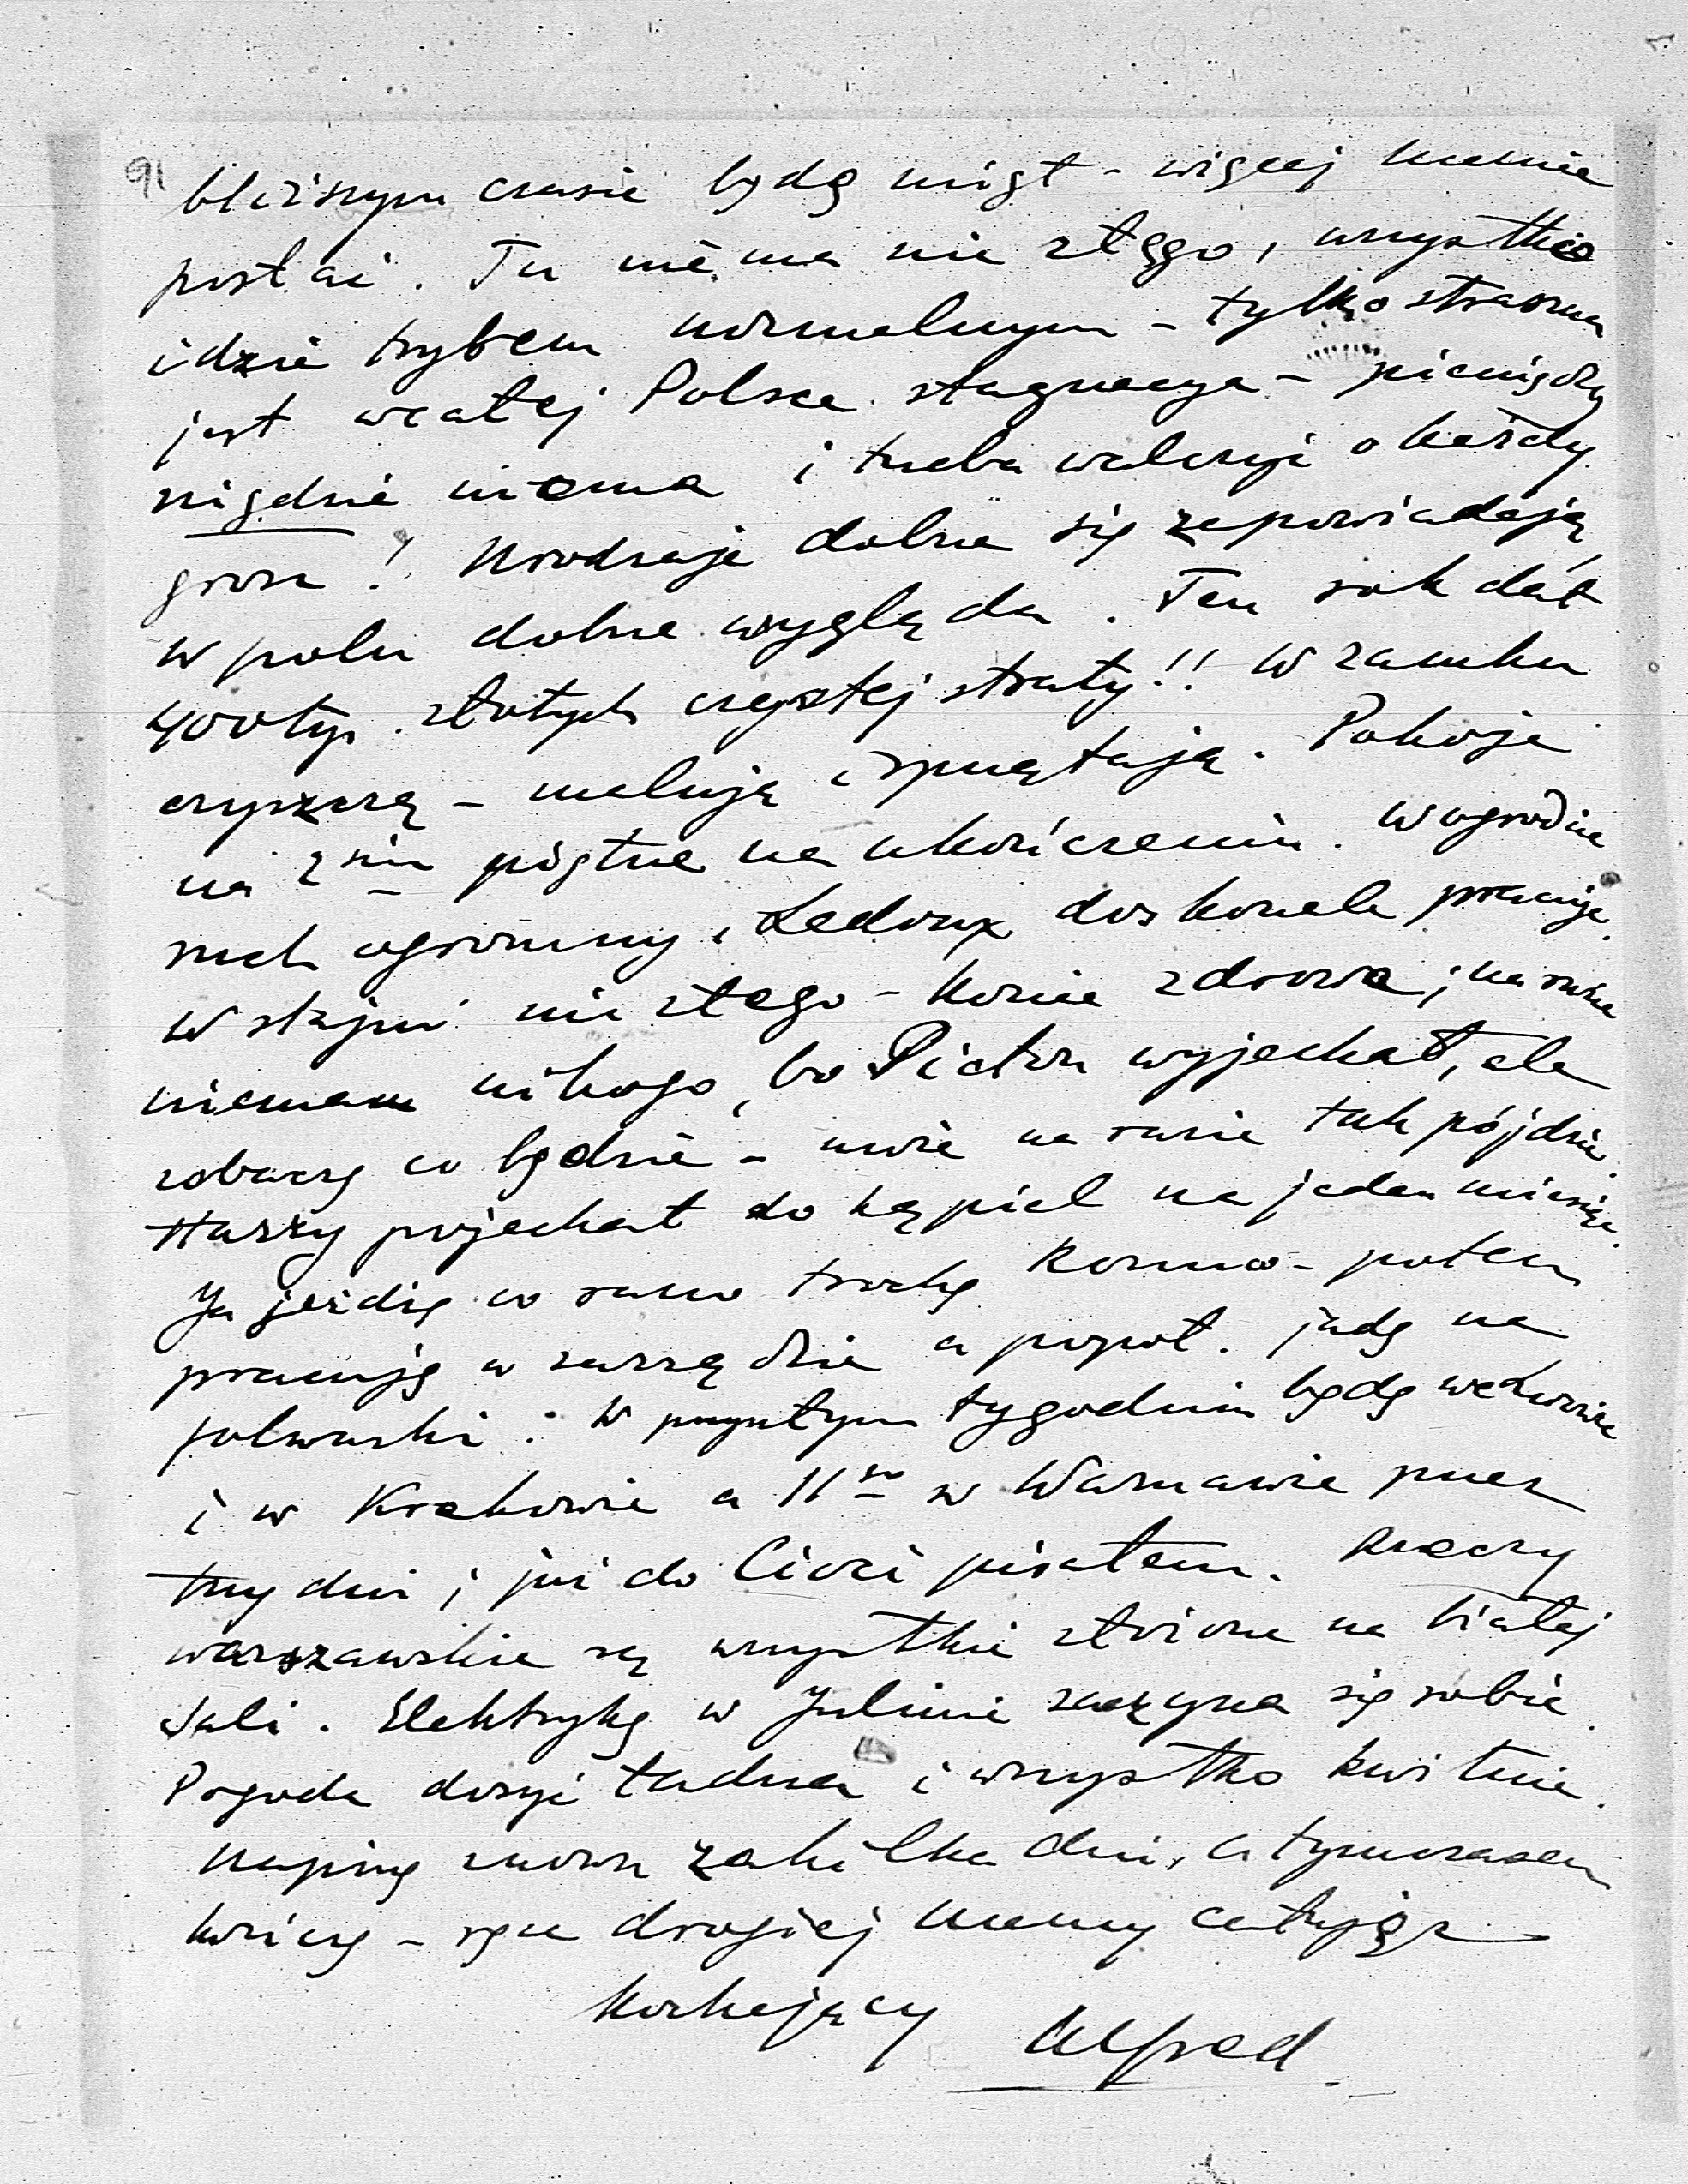 91
bliższym czasie będę mógł - więcej Mamie
posłać. Tu niema nic złego, wszystko
idzie trybem normalnym - tylko straszna
jest w całej Polsce stagnacya - pieniędzy
nigdzie niema i trzeba walczyć o każdy
grosz! Urodzaje dobrze się zapowiadają
w polu dobrze wygląda. Ten rok dał
400 tys. złotych czystej straty!! W zamku
czyszczą - malują i sprzątają. Pokoje
na 2giem piętrze na ukończeniu. W ogrodzie
ruch ogromny, Ledoux doskonale pracuje.
W stajni nic złego - konie zdrowe; na razie
niemam nikogo, bo Picton wyjechał, ale
zobaczę co będzie - może na razie tak pójdzie.
Harry pojechał do kąpiel na jeden miesiąc.
Ja jeżdżę co rano trochę konno - potem
pracuję w zarządzie a popoł. jadę na
folwarki. W przyszłym tygodniu będę we Lwowie
i w Krakowie a 11go w Warszawie przez
trzy dni; już do Cioci pisałem. Rzeczy
warszawskie są wszystkie złożone na białej
Sali. Elektrykę w Julinie zaczyna się robić.
Pogoda dosyć ładna i wszystko kwitnie.
Napiszę znowu za kilka dni, a tymczasem
kończę - ręce drogiej Mamy całując
Kochający
Alfred